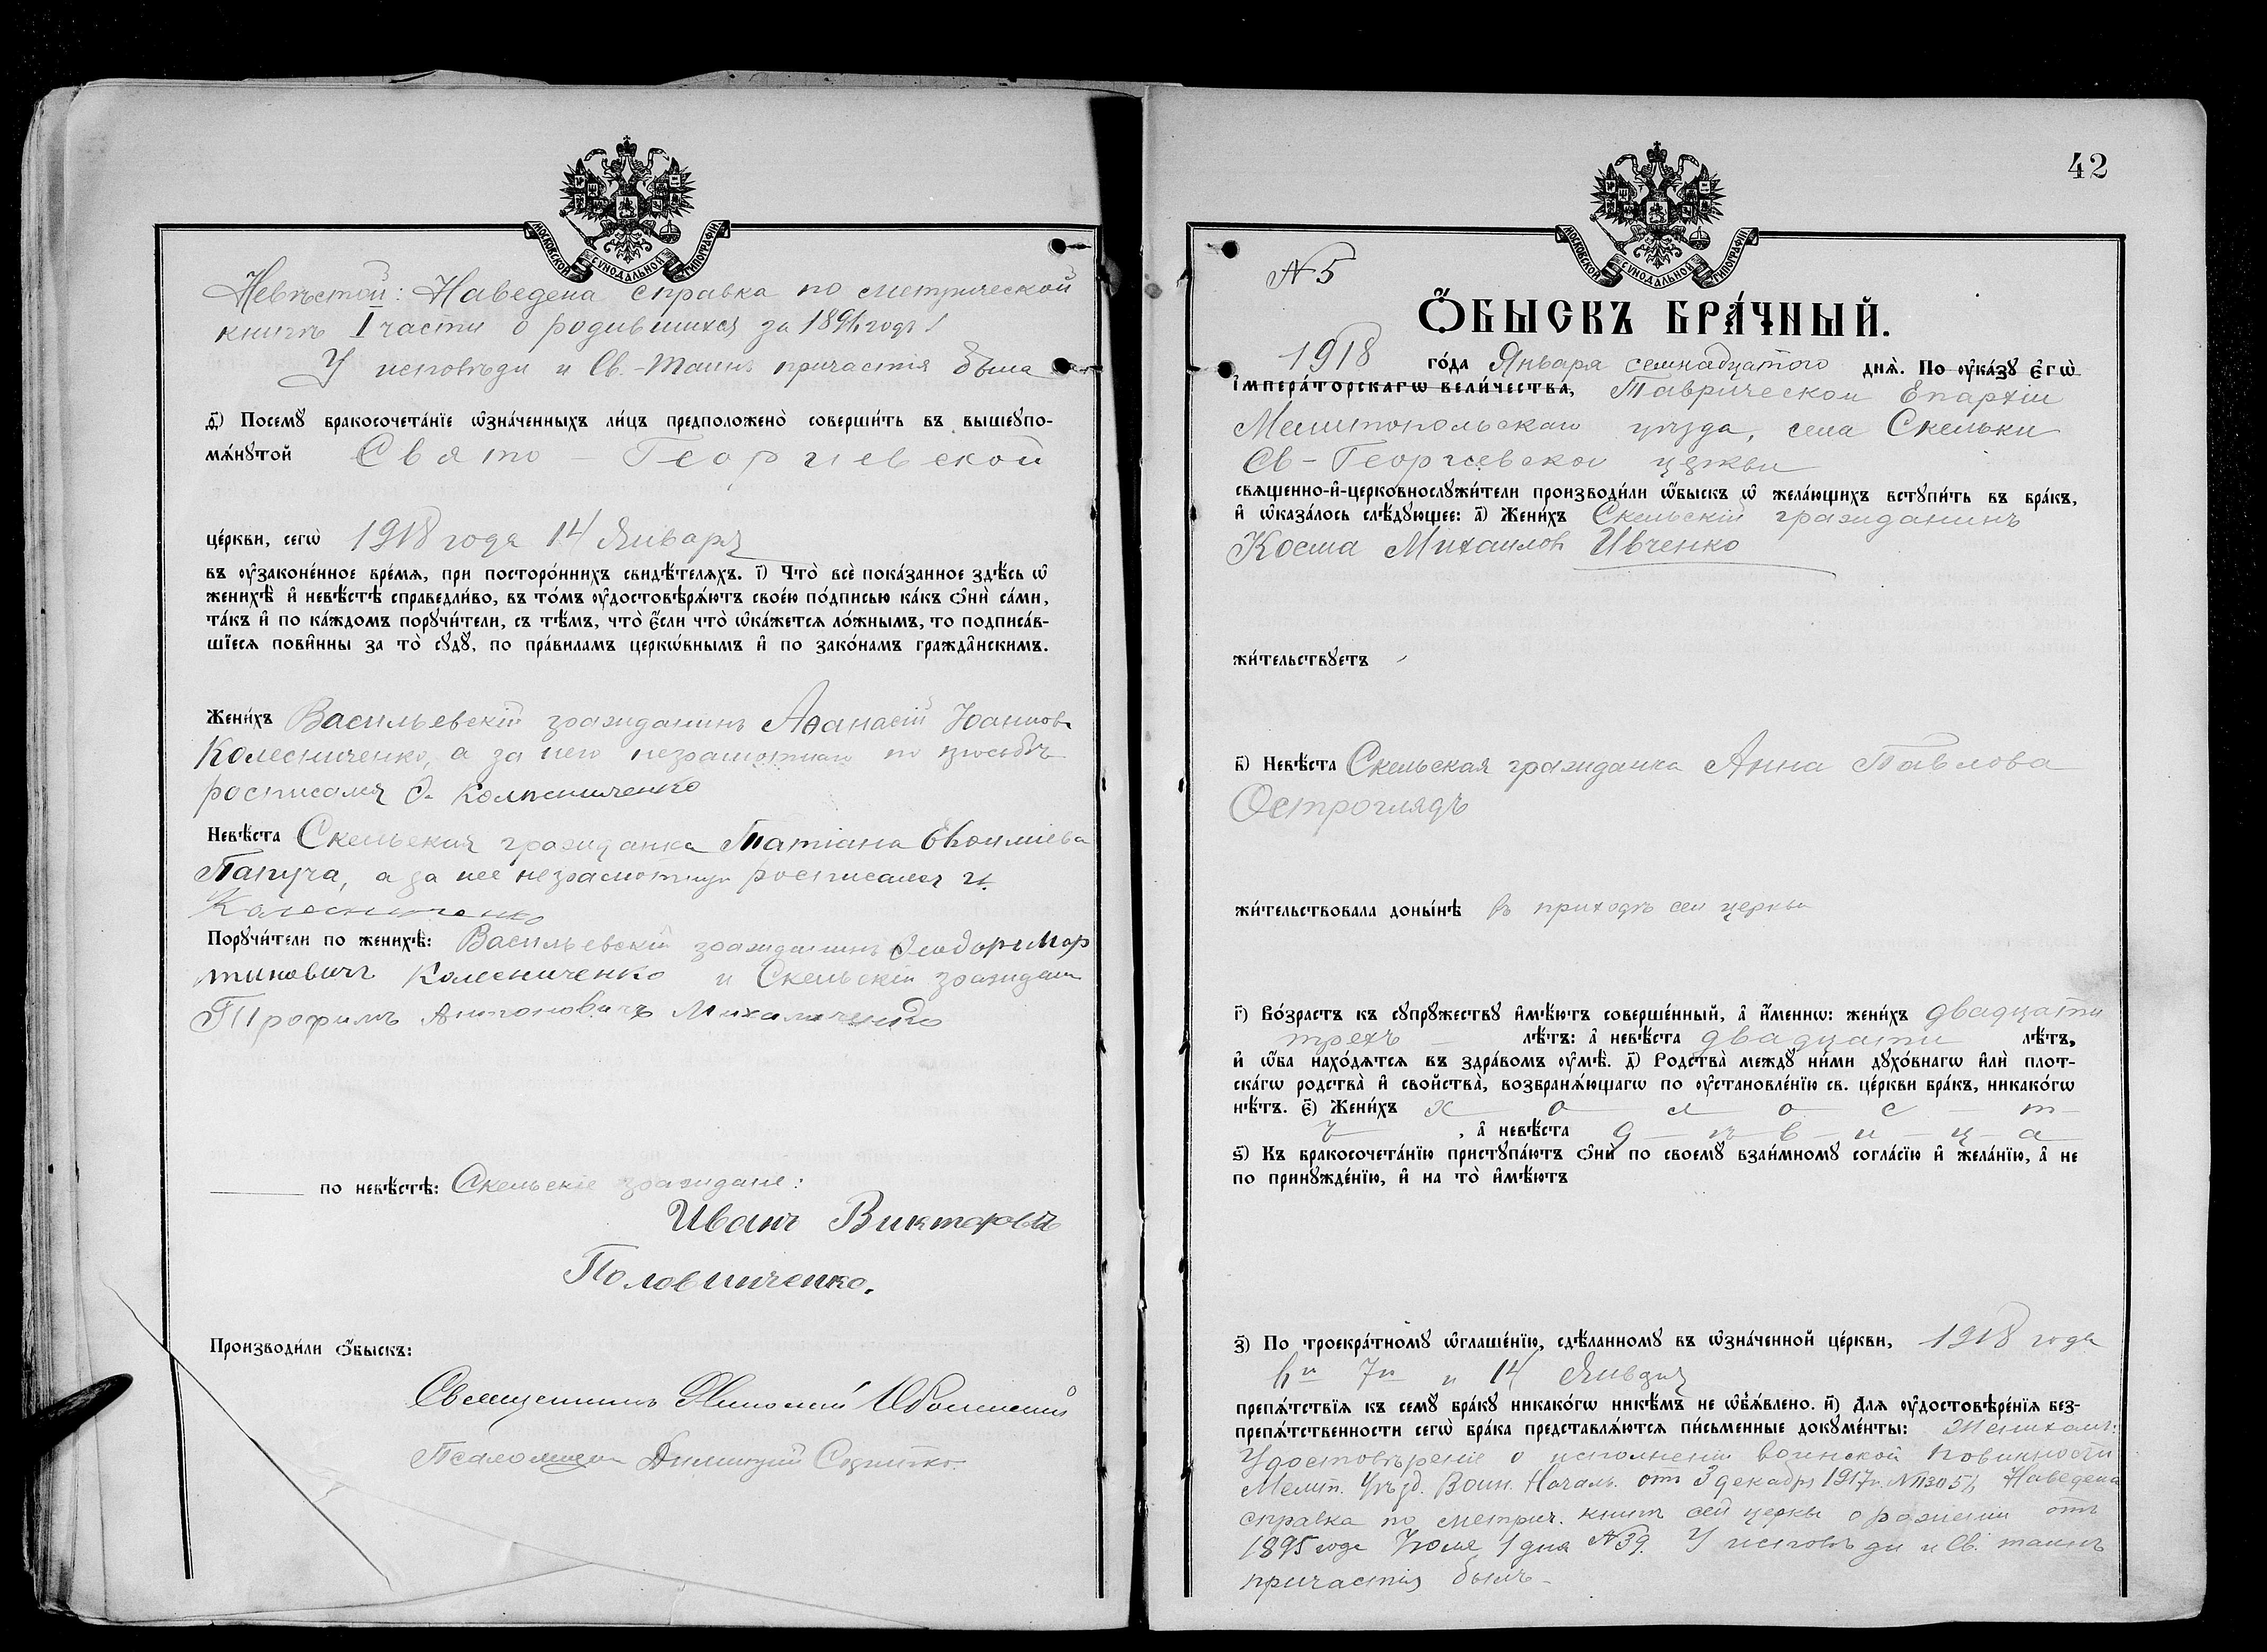 МОСКОВСКОЙ СѴНОДАЛЬНОЙ ТИПОГРАФІИ
Невѣстой: Наведена справка по метрической
книгѣ I части о родившихся за годъ
У исповѣди и Св. Таинъ причастія была
д҃) Посемꙋ̀ бракосочета́нїе ѡ҆зна́ченныхъ ли́цъ предположено̀ соверши́ть въ вышеꙋпо-
мѧ́нꙋтой Свято - Георгіевской
це́ркви, сегѡ̀ 1918 года 14 Января
въ ᲂу҆законе́нное вре́мѧ, при посторо́ннихъ свидѣ́телѧхъ. і҃) Что̀ всѐ пока́занное здѣ́сь ѡ҆
женихѣ̀ и҆ невѣ́стѣ справедли́во, въ то́мъ ᲂу҆достовѣрѧ́ютъ свое́ю по́дписью ка́къ ѻ҆нѝ са́ми,
та́къ и҆ по ка́ждомъ порꙋчи́тели, съ тѣ́мъ, что̀ є҆́сли что̀ ѡ҆ка́жетсѧ ло́жнымъ, то подписа́в-
шїесѧ пови́нны за то̀ сꙋдꙋ̀, по пра́виламъ церко́внымъ и҆ по зако́намъ гражда́нскимъ.
Жени́хъ Васильевскій гражданинъ Аѳанасій Іоанновъ
Колесниченко, а за него неграмотнаго по просьбѣ
росписался Колесниченко
Невѣ́ста Скельская гражданка Татіана Евѳиміева
Папуча, а за нее неграмотную росписался
Колесниченко
Порꙋчи́тели по женихѣ̀: Васильевскій гражданинъ Ѳеодоръ Мар
тиновичъ Колесниченко и Скельскій граждан
Трофимъ Антоновичъ Михайличенко
по невѣ́стѣ: Скельскіе граждане:
Иванъ Викторовъ
Половинченко.
Производи́ли ѻ҆́быскъ:
Священникъ Николай
Псаломщикъ Димитрій
42
МОСКОВСКОЙ СѴНОДАЛЬНОЙ ТИПОГРАФІИ
№ 5
Ѻ҆́БЫСКЪ БРА́ЧНЫЙ.
1918 го́да Января семнадцатого днѧ̀. По ᲂу҆ка́зꙋ є҆гѡ̀
і҆мпера́торскагѡ вели́чества, Таврической Епархіи
Мелитопольскаго уѣзда, села Скельки
Св-Георгіевской церкви
свѧщенно-и҆-церковнослꙋжи́тели производи́ли ѡ҆́быскъ ѡ҆ жела́ющихъ встꙋпи́ть въ бра́къ,
и҆ ѡ҆каза́лось слѣ́дꙋющее: а҃) Жени́хъ Скельскій гражданинъ
Косма Михаиловъ Ивченко
жи́тельствꙋетъ
в҃) Невѣ́ста Скельская гражданка Анна Павлова
Остроглядъ
жи́тельствовала доны́нѣ въ приходѣ сей церкви
г҃) Во́зрастъ къ сꙋпрꙋ́жествꙋ и҆мѣ́ютъ соверше́нный, а҆ и҆́меннѡ: жени́хъ двадцати
трехъ лѣ́тъ: а҆ невѣ́ста двадцати лѣ́тъ,
и҆ ѡ҆́ба нахо́дѧтсѧ въ здра́вомъ ᲂу҆мѣ̀. д҃) Родства̀ междꙋ̀ ни́ми дꙋхо́внагѡ и҆лѝ плот-
ска́гѡ родства̀ и҆ свойства̀, возбранѧ́ющагѡ по ᲂу҆становле́нїю св. це́ркви бра́къ, никако́гѡ
нѣ́тъ. є҃) Жени́хъ х о л о с т
ъ , а҆ невѣ́ста д ѣ в и ц а
ѕ҃) Къ бракосочета́нїю пристꙋпа́ютъ ѻ҆нѝ по своемꙋ̀ взаи́мномꙋ согла́сїю и҆ жела́нїю, а҆ не
по принꙋжде́нїю, и҆ на то̀ и҆мѣ́ютъ
з҃) По троекра́тномꙋ ѡ҆глаше́нїю, сдѣ́ланномꙋ въ ѡ҆зна́ченной це́ркви, 1918 года
6го 7го и 14 Января
препѧ́тствїѧ къ семꙋ̀ бра́кꙋ никако́гѡ никѣ́мъ не ѡ҆б̾ѧ́влено. и҃) Длѧ ᲂу҆достовѣре́нїѧ без-
препѧ́тственности сегѡ̀ бра́ка представлѧ́ютсѧ пи́сьменные докꙋме́нты: Женихомъ:
Удостовѣреніе о исполненіи воинской повинности
Мелит. Уѣзд. Воин. Началь. отъ 3 декабря 1917 г. Наведена
справка по метрич. книгѣ сей церкви о рожденіи отъ
1895 года Іюля 1 дня №39. У исповѣди и Св. таинъ
причастія былъ